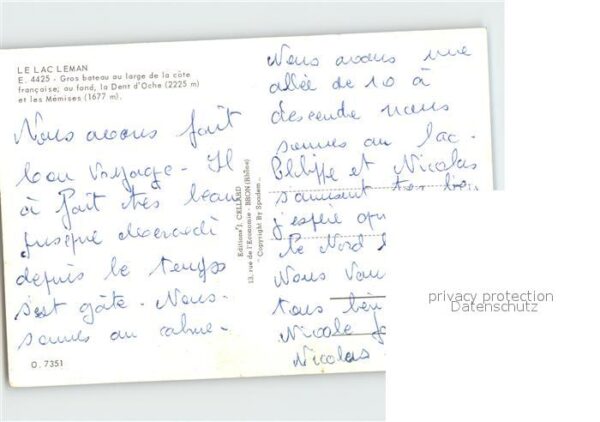 LE LAC LEMAN
E. 4425 - Gros bateau au large de la côte
française; au fond, la Dent d'Oche (2225 m)
et les Mémises (1677 m).
Nous avons fait
bon voyage - Il
à fait très beau
jusque mercredi
depuis le temps
s'est gâte - Nous
sommes au calme -
O. 7351
Editions J. CELLARD
13, rue de l'Economie - BRON (Rhône)
" Copyright By Spadem "
Nous avons une
allée de 10 à
descendre nous
sommes au lac.
Philippe et Nicolas
s'amusent très bien
j'espère que
le Nord
Nous
tous bien
Nicole
Nicolas
privacy protection
Datenschutz